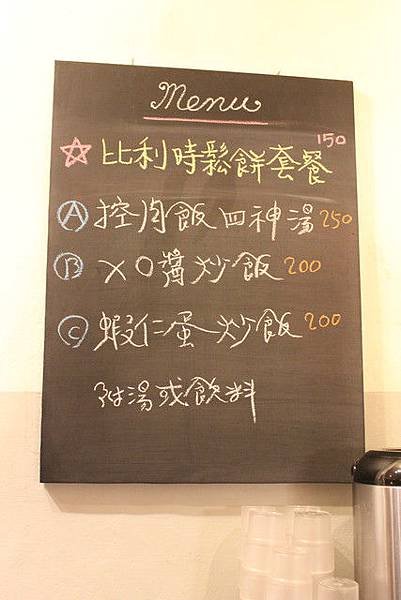 Menu
☆ 比利時鬆餅套餐 150
Ⓐ 控肉飯 四神湯 250
Ⓑ XO醬炒飯 200
Ⓒ 蝦仁蛋炒飯 200
附湯或飲料